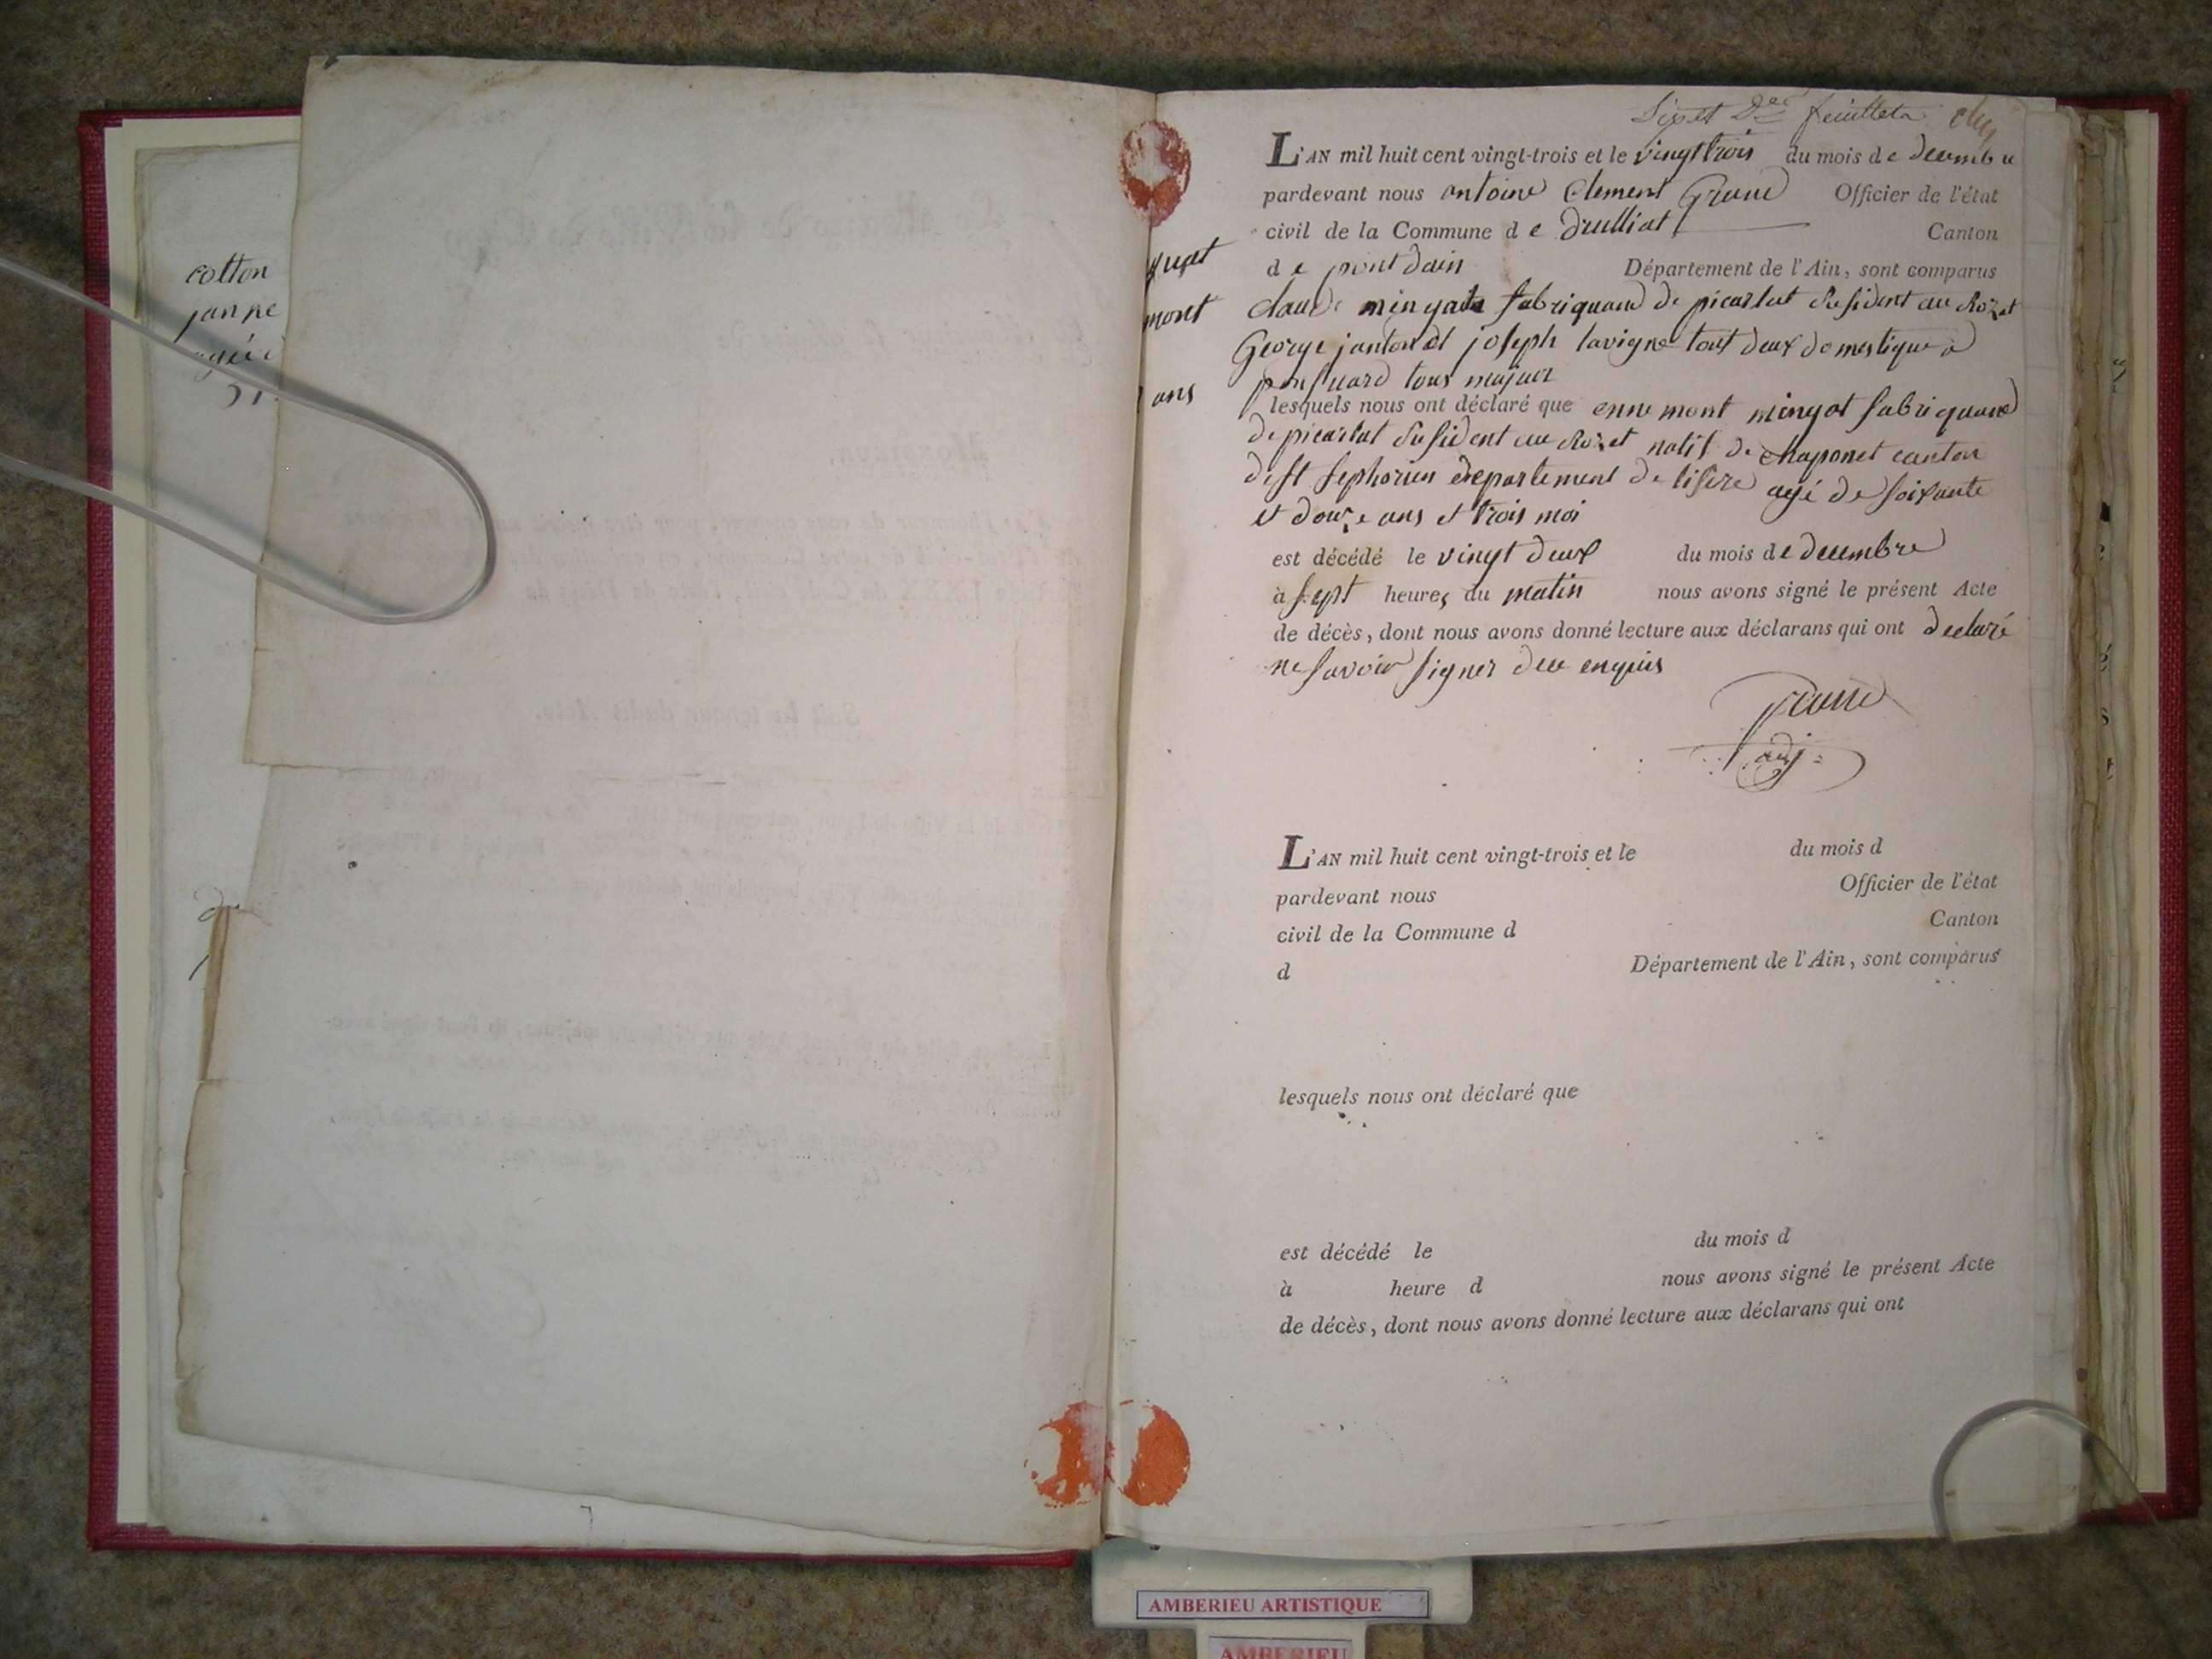 cotton
janne
agée d
Sixet Der feuilleta
L'AN mil huit cent vingt-trois et le vingttrois du mois de decembre
pardevant nous antoine Clement Officier de l'état
civil de la Commune de Druilliat Canton
de pont dain Département de l'Ain, sont comparus
mont
ans
claude mingat fabriquand de picarlat resident au Rozet
George janton et joseph lavigne tout deux domestique a
tous majeur
lesquels nous ont déclaré que ennemont mingat fabriquand
de picarlat residant au Rozet natif de chaponet canton
de st sephorien departement de lisere agé de soixante
et douze ans et trois moi
est décédé le vingt deux du mois de decembre
à sept heures du matin nous avons signé le présent Acte
de décès, dont nous avons donné lecture aux déclarans qui ont declaré
ne savoir signer de ce enquis
adj
L'AN mil huit cent vingt-trois et le du mois d
pardevant nous Officier de l'état
civil de la Commune d Canton
d Département de l'Ain, sont comparus
lesquels nous ont déclaré que
est décédé le du mois d
à heure d nous avons signé le présent Acte
de décès, dont nous avons donné lecture aux déclarans qui ont
AMBERIEU ARTISTIQUE
AMBERIEU